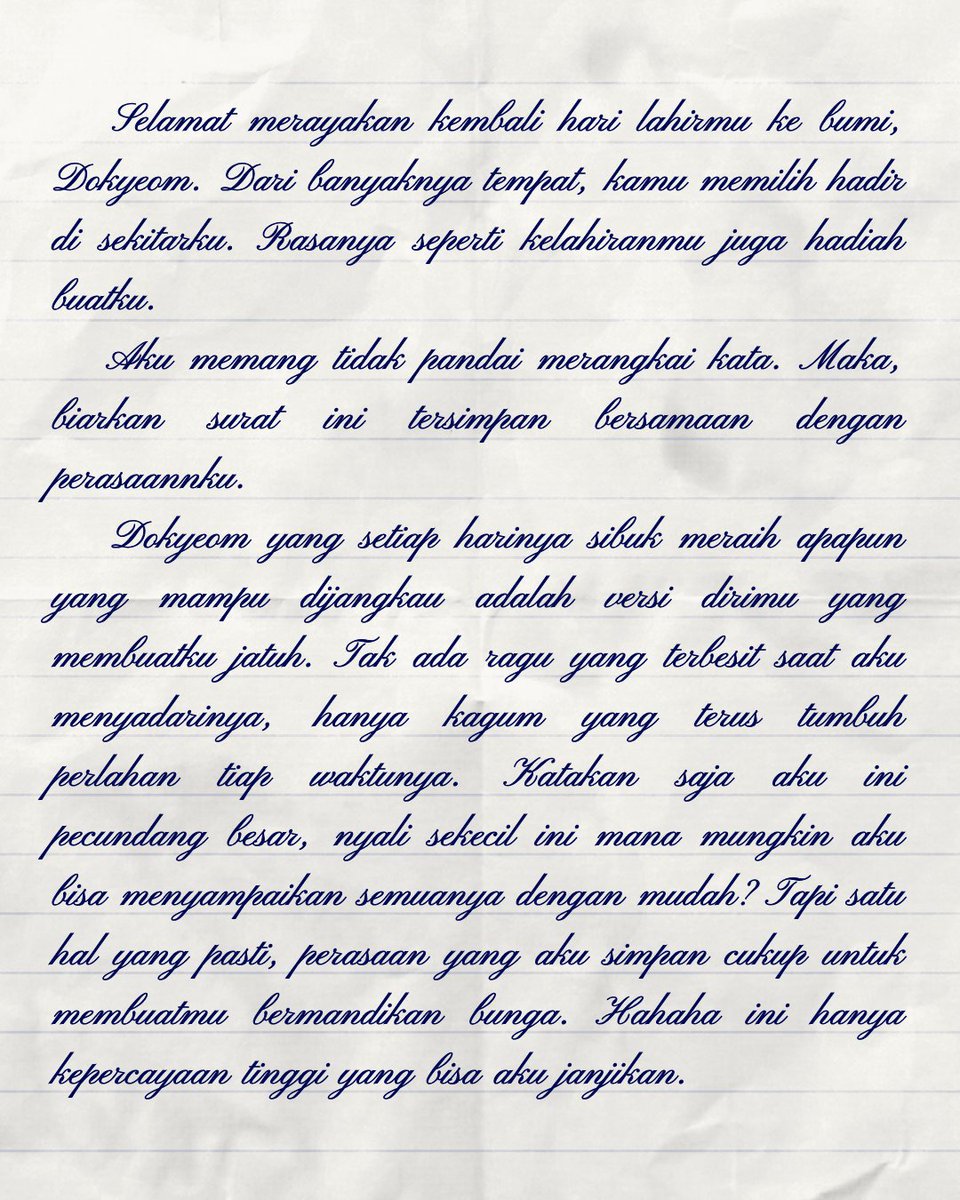 Selamat merayakan kembali hari lahirmu ke bumi,
Dokyeom. Dari banyaknya tempat, kamu memilih hadir
di sekitarku. Rasanya seperti kelahiranmu juga hadiah
buatku.
Aku memang tidak pandai merangkai kata. Maka,
biarkan surat ini tersimpan bersamaan dengan
perasaannku.
Dokyeom yang setiap harinya sibuk meraih apapun
yang mampu dijangkau adalah versi dirimu yang
membuatku jatuh. Tak ada ragu yang terbesit saat aku
menyadarinya, hanya kagum yang terus tumbuh
perlahan tiap waktunya. Katakan saja aku ini
pecundang besar, nyali sekecil ini mana mungkin aku
bisa menyampaikan semuanya dengan mudah? Tapi satu
hal yang pasti, perasaan yang aku simpan cukup untuk
membuatmu bermandikan bunga. Hahaha ini hanya
kepercayaan tinggi yang bisa aku janjikan.